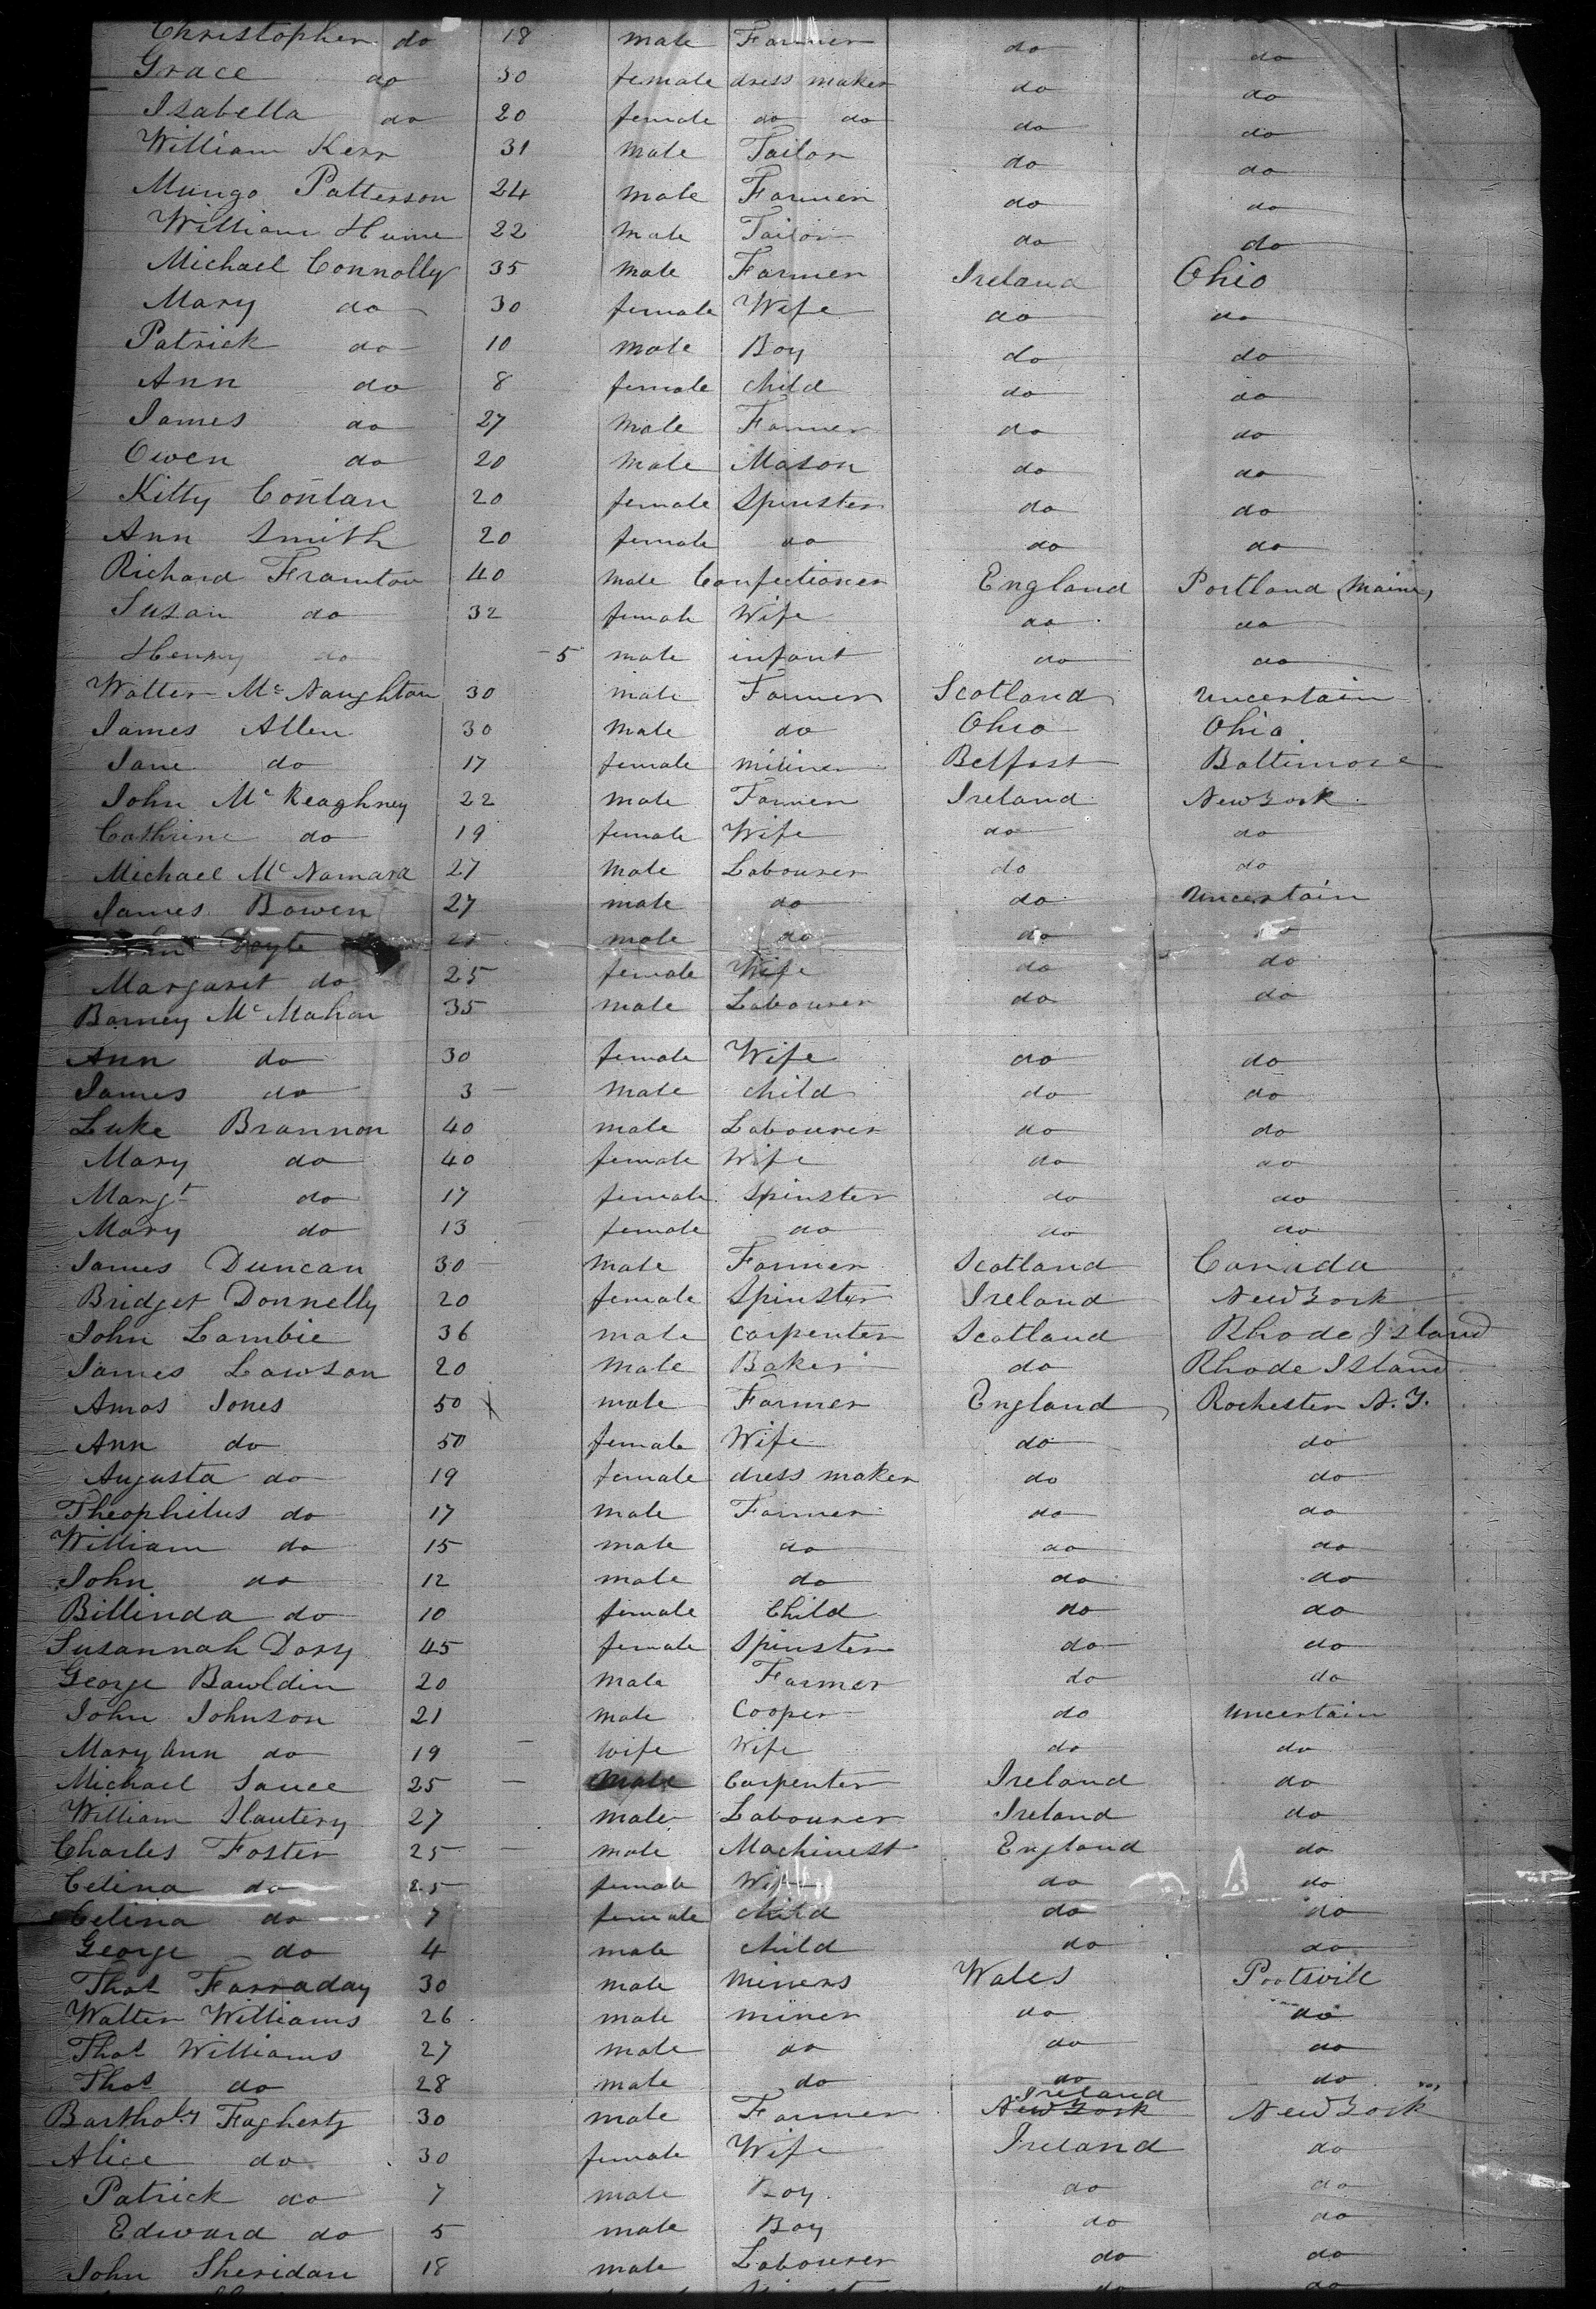 Christopher do 18 male Farmer do do
Grace do 30 female dress maker do do
Isabella do 20 female do do do do
William Kerr 31 male Tailor do do
Mungo Patterson 24 male Farmer do do
William Hume 22 male Tailor do do
Michael Connolly 35 male Farmer Ireland Ohio
Mary do 30 female Wife do do
Patrick do 10 male Boy do do
Ann do 8 female child do do
James do 27 male Farmer do do
Owen do 20 male Mason do do
Kitty Conlan 20 female Spinster do do
Ann Smith 20 female do do do
Richard Framton 40 male Confectioner England Portland (Maine)
Susan do 32 female Wife do do
Henry do 5 male infant do do
Walter McNaughton 30 male Farmer Scotland Uncertain
James Allen 30 male do Ohio Ohio
Jane do 17 female miliner Belfast Baltimore
John McKeaghney 22 male Farmer Ireland New York
Cathrine do 19 female Wife do do
Michael McNamara 27 male Labourer do do
James Bowen 27 male do do Uncertain
John Doyle 25 male do do do
Margaret do 25 female Wife do do
Barney McMahon 35 male Labourer do do
Ann do 30 female Wife do do
James do 3 male child do do
Luke Brannon 40 male Labourer do do
Mary do 40 female Wife do do
Margt do 17 female Spinster do do
Mary do 13 female do do do
James Duncan 30 male Farmer Scotland Canada
Bridget Donnelly 20 female Spinster Ireland New York
John Lambie 36 male carpenter Scotland Rhode Island
James Lawson 20 male Baker do Rhode Island
Amos Jones 50 male Farmer England Rochester N.Y.
Ann do 50 female Wife do do
Augusta do 19 female dress maker do do
Theophilus do 17 male Farmer do do
William do 15 male do do do
John do 12 male do do do
Billinda do 10 female Child do do
Susannah Dory 45 female Spinster do do
George Bawldin 20 male Farmer do do
John Johnson 21 male Cooper do uncertain
Mary Ann do 19 wife Wife do do
Michael Sauce 25 male Carpenter Ireland do
William Slautery 27 male Labourer Ireland do
Charles Foster 25 male Machinest England do
Celina do 25 female Wife do do
Celina do 7 female child do do
George do 4 male child do do
Thos Farraday 30 male miners Wales Pootsvill
Walter Williams 26 male miner do do
Thos Williams 27 male do do do
Thos do 28 male do do do
Bartholy Fagherty 30 male Farmer New York Ireland New York
Alice do 30 female Wife Ireland do
Patrick do 7 male Boy do do
Edward do 5 male Boy do do
John Sheridan 18 male Labourer do do